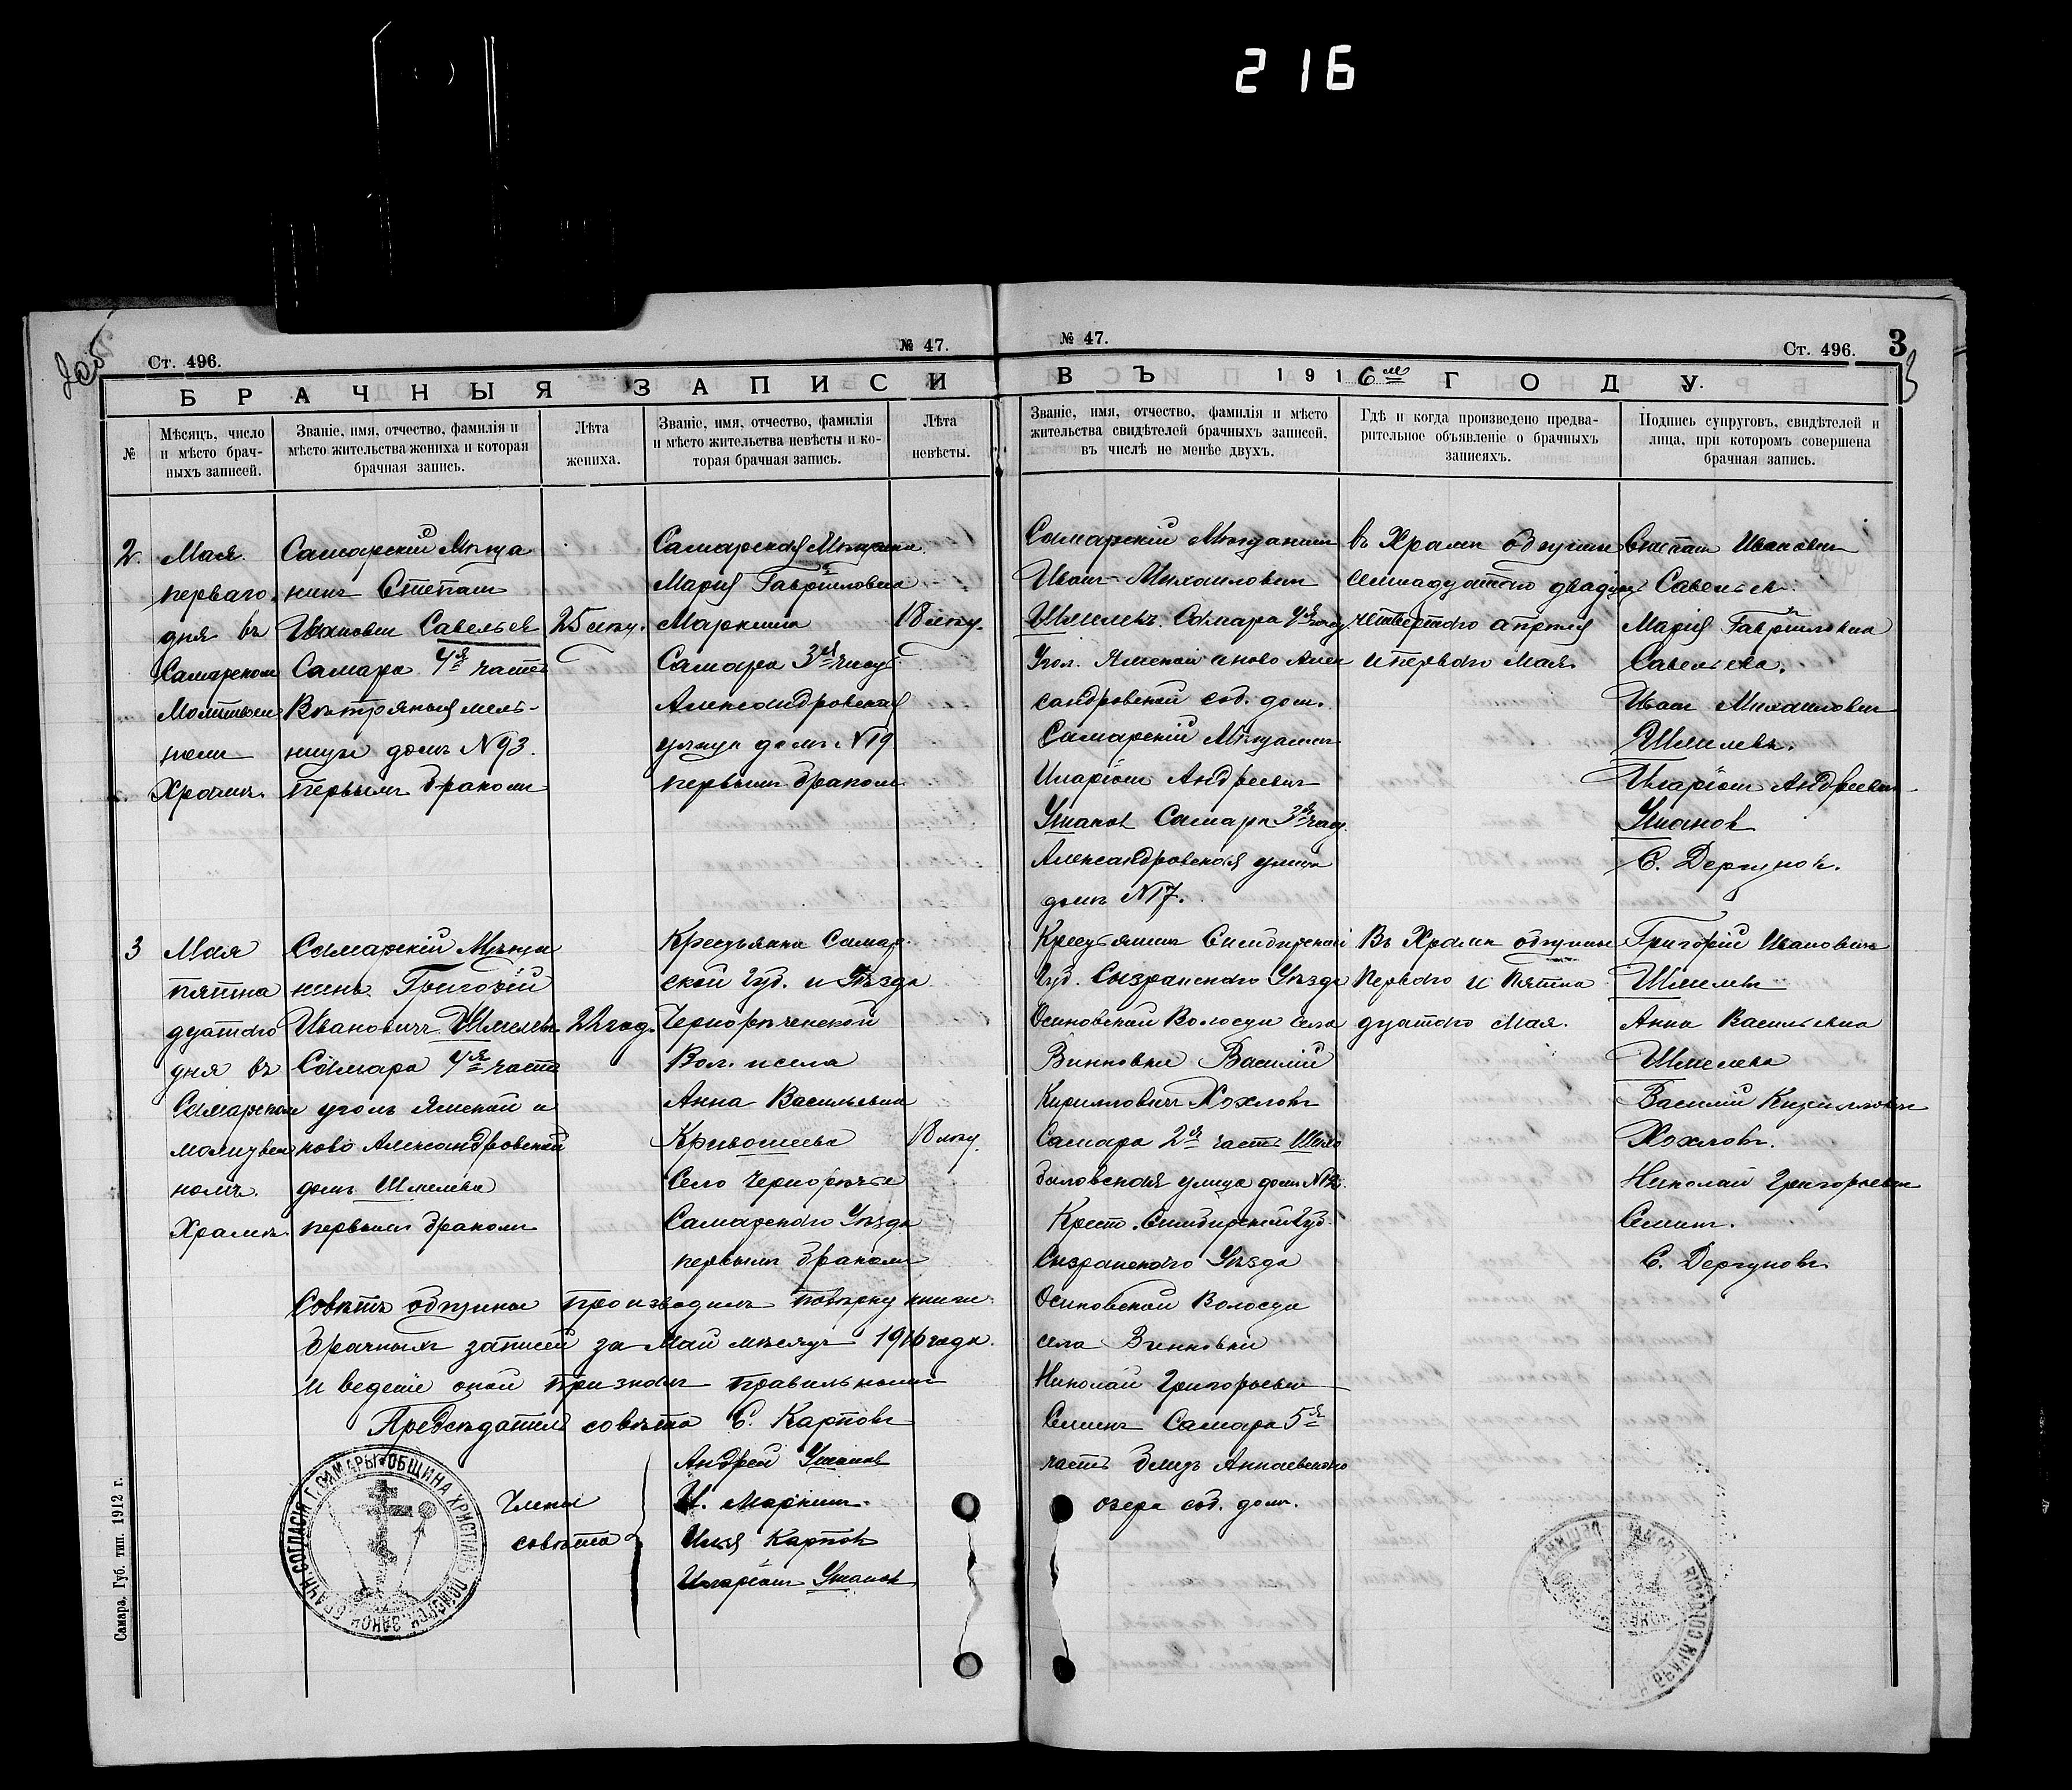 216
Ст. 496.
№ 47.
БРАЧНЫЯ ЗАПИСИ
№
Мѣсяцъ, число и мѣсто брач-ныхъ записей.
Званіе, имя, отчество, фамилія и мѣсто жительства жениха и которая брачная запись.
Лѣта жениха.
Званіе, имя, отчество, фамилія и мѣсто жительства невѣсты и ко-торая брачная запись.
Лѣта невѣсты.
2
Мая
перваго
дня въ
Самарском
Молитвен
ном
Храмѣ
Самарскій Мѣща
нинъ Степан
Иванович Савельев
Самара 4я часть
Вѣтряныя мель-
ницы домъ N93.
Первымъ браком
25 лѣт.
Самарская Мѣщанка
Марія Гавриловна
Маркина
Самара 3я часть
Александровская
улица домъ N19
первым браком
18 лѣт.
3
Мая
пятна
дцатаго
дня въ
Самарском
молитвен
номъ
Храмѣ
Самарскій Мѣща
нинъ Григорій
Ивановичъ Шмелевъ
Самара 4я часть
уголъ Ямской и
ново Александровской
домъ Шмелева
первым браком
22 год.
Крестьянка Самар-
ской Губ. и Уѣзда
Чернорѣченской
Вол. и села
Анна Васильевна
Кривошеева
Село Чернорѣчье
Самарскаго Уѣзда
первым браком
18 лѣт.
Совѣтъ общины производилъ повѣрку книги
брачныхъ записей за Май мѣсяцъ 1916 года.
и веденіе оной призналъ правильным
Предсѣдатель совѣта С. Карповъ
Члены
совѣта
Андрей Ушанов
И. Маркин.
Илья Карпов
Иларіон Ушанов
Самара. Губ. тип. 1912 г.
№ 47.
Ст. 496.
3
ВЪ 1916 ГОДУ.
Званіе, имя, отчество, фамилія и мѣсто жительства свидѣтелей брачныхъ записей, въ числѣ не менѣе двухъ.
Гдѣ и когда произведено предва-рительное объявленіе о брачныхъ записяхъ.
Подпись супруговъ, свидѣтелей и лица, при которомъ совершена брачная запись.
Самарскій Мѣщанин
Иван Михаилович
Шмелевъ. Самара 4я част
Угол. Ямской и ново Алек
сандровской соб. дом.
Самарскій Мѣщанин
Иларіон Андреевич
Ушанов Самара 3я част.
Александровская улица
домъ N17.
въ Храмѣ общины
семнадцатого двадцат
четвертого апрѣля
и первого Мая.
Степан Иванович
Савельев.
Марія Гавриловна
Савельева.
Иван Михаилович
Шмелевъ.
Иларіон Андреевич
Ушанов
С. Дергунов.
Крестьянин Симбирской
Губ. Сызранского Уѣзда
Осиновской Волости села
Винновки Василій
Кириллович Хохловъ
Самара 2я часть
улица дом
Крест. Симбирской Губ.
Сызранского Уѣзда
Осиновской Волости
села Винновки
Николай Григорьевич
Семин Самара 5я
часть близъ Аннаевского
озера соб. дом.
Въ Храмѣ общины
Первого и пятна
дцатого Мая.
Григорій Ивановичъ
Шмелевъ
Анна Васильевна
Шмелева
Василій Кириллович
Хохловъ.
Николай Григорьевич
Семин.
С. Дергуновъ